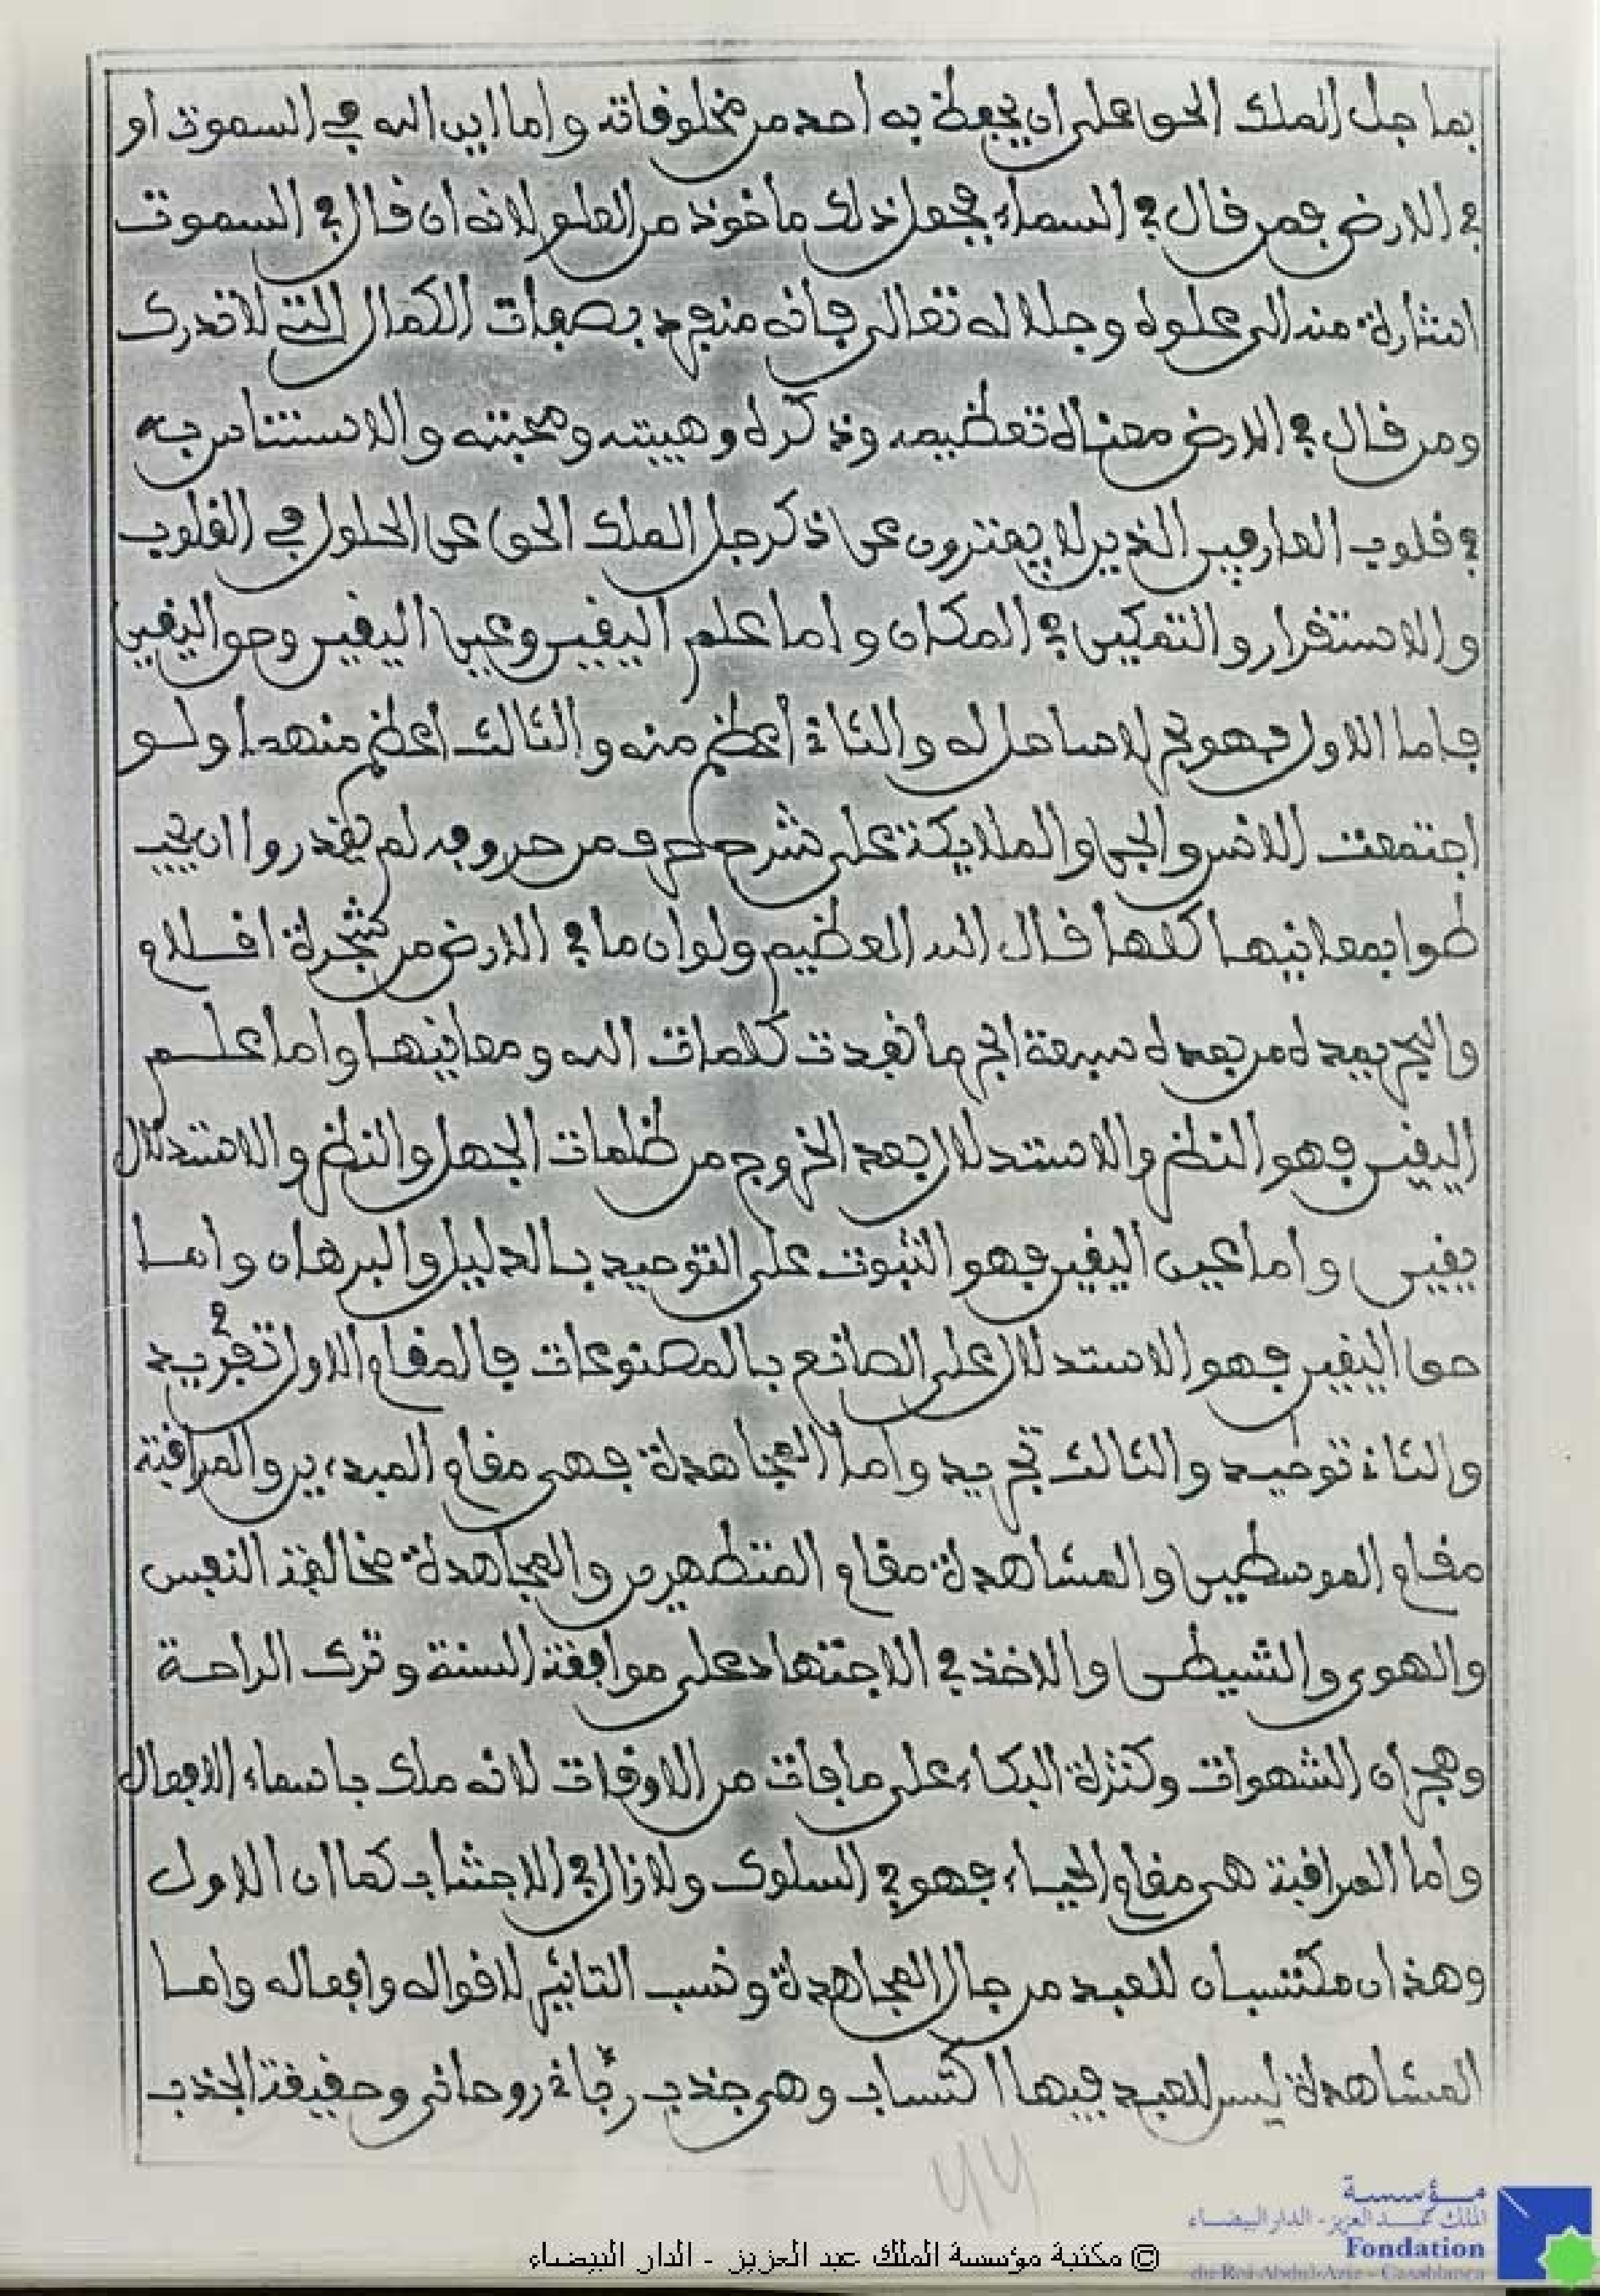 بما جل الملك الحق على ان يحيط به احد من مخلوفاته واما اين الله في السموت او
في الارض فمن قال في السماء فجعل ذلك ماخوذ من العلو لانه ان قال في السموت
اشارة منه الى علوه وجلاله تعالى فانه منفرد بصفات الكمال التي لا تدرك
ومن قال في الارض معناه تعظيمه وذكره وهيبته ومحبته والاستئناس به
في قلوب العارفين الذين لا يفترون عن ذكر جل الملك الحق عن الحلول في القلوب
والاستقرار والتمكين في المكان واما علم اليقين وعين اليقين وحق اليقين
فاما الاول فهو بحر لا ساحل له والثاني اعظم منه والثالث اعظم منهما ولو
اجتمعت الانس والجن والملايكة على شرح حرف من حروفه لم يقدروا ان يحيـ
طوا بمعانيها كلها قال الله العظيم ولو ان ما في الارض من شجرة اقلام
والبحر يمده من بعده سبعة ابحر ما نفدت كلمات الله ومعانيها واما علم
اليقين فهو النظر والاستدلال بعد الخروج من ظلمات الجهل والنظر والاستدلال
يقين واما عين اليقين فهو الثبوت على التوحيد بالدليل والبرهان واما
حق اليقين فهو الاستدلال على الصانع بالمصنوعات فالمقام الاول تفريد
والثاني توحيد والثالث تجريد واما المجاهدة فهي مقام المبدءين والمراقبة
مقام الموسطين والمشاهدة مقام المتطهرين والمجاهدة مخالفة النفس
والهوى والشيطن والاخذ في الاجتهاد على موافقة السنة وترك الراحة
وهجران الشهوات وكثرة البكاء على ما فات من الاوقات لانه ملك باسماء الافعال
واما المراقبة هي مقام الحياء فهو في السلوك ولا زال في الاجتناب كما ان الاول
وهذان مكتسبان للعبد من جال المجاهدة ونسب التاثير لاقواله وافعاله واما
المشاهدة ليس للعبد فيها اكتساب وهي جذب رباني روحاني وحقيقة الجذب
44
مؤسسة
الملك عبد العزيز - الدار البيضاء
Fondation
du Roi Abdul-Aziz - Casablanca
© مكتبة مؤسسة الملك عبد العزيز - الدار البيضاء